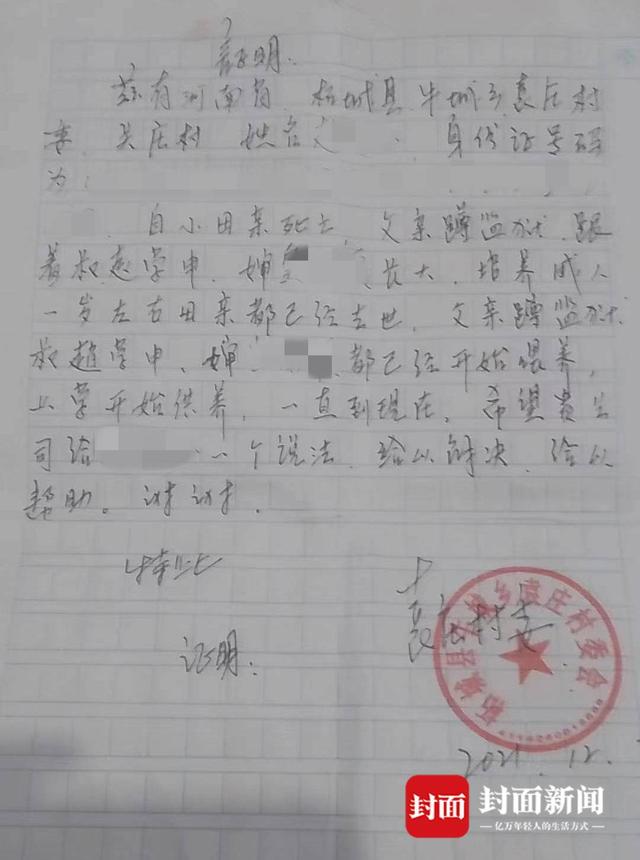 证明.
兹有河南省、柘城县、牛城乡袁庄村
委、吴庄村 姓名 身份证号码
为:
自小母亲死亡、父亲蹲监狱、跟
着叔赵学申、婶 长大、培养成人
一岁左右母亲都已经去世、父亲蹲监狱
叔赵学申、婶 都已经开始喂养,
上学开始供养、一直到现在。希望贵公
司给 一个说法、给以解决、给以
帮助。谢谢.
特此
袁庄村委
证明.
城乡袁庄村委会
2021.12.
封面 封面新闻
亿万年轻人的生活方式